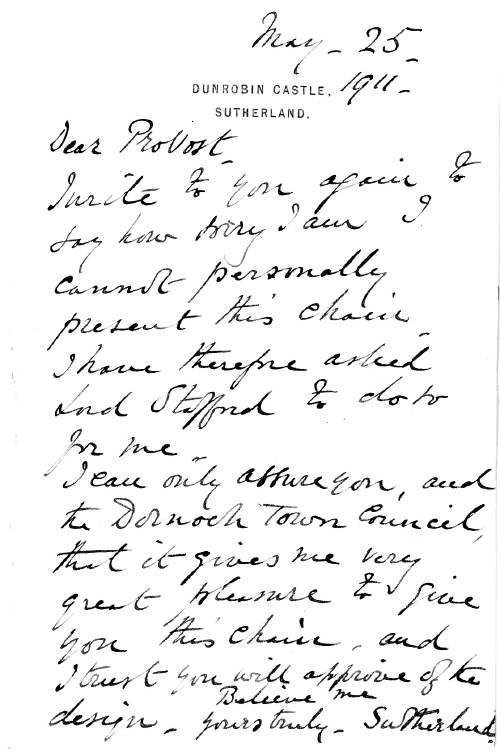 May - 25 -
DUNROBIN CASTLE, 1911 -
SUTHERLAND.
Dear Provost -
I write to you again to
say how sorry I am I
cannot personally
present this chain -
I have therefore asked
Lord Stafford to do so
for me -
I can only assure you, and
the Dornoch Town Council,
that it gives me very
great pleasure to give
you this chain, and
I trust you will approve of the
design - Believe me
yours truly - Sutherland.